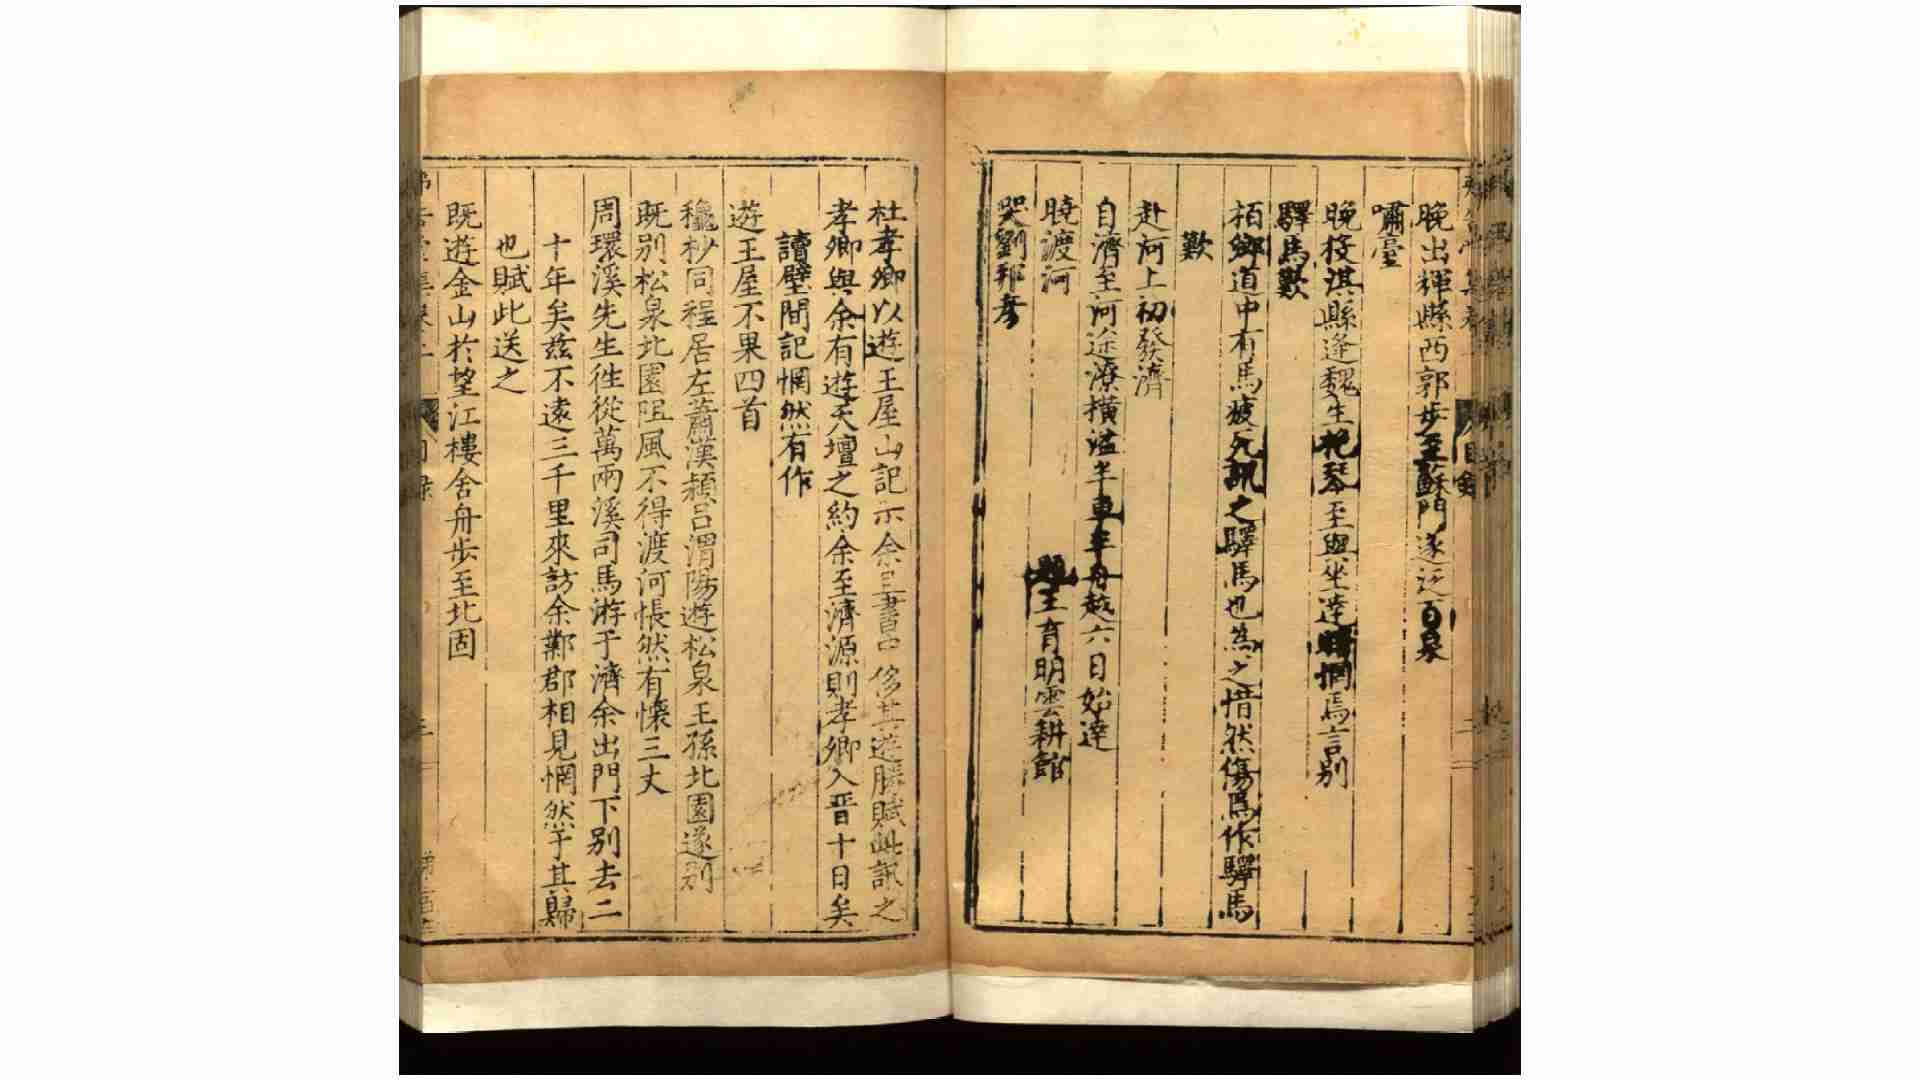 晚出輝縣西郭步至蘇門遂迄百泉
嘯臺
晚投淇縣逢魏生抱琴至與坐達曙惘焉言別
驛馬歎
栢鄉道中有馬疲死訊之驛馬也為之惜然傷焉作驛馬
歎
赴河上初發濟
自濟至河近潦橫溢半車半舟越六日始達
曉渡河
題王育明雲耕館
哭劉邦彥
杜孝卿以遊王屋山記示余且書中侈其遊勝賦此訊之
孝卿與余有遊天壇之約余至濟源則孝卿入晉十日矣
讀壁間記惘然有作
遊王屋不果四首
穐杪同程居左蕭漢頴呂渭陽遊松泉王孫北園遂別
既別松泉北園阻風不得渡河悵然有懷三丈
周環溪先生徃從萬兩溪司馬游于濟余出門下別去二
十年矣茲不遠三千里來訪余鄴郡相見惘然于其歸
也賦此送之
既遊金山於望江樓舍舟步至北固